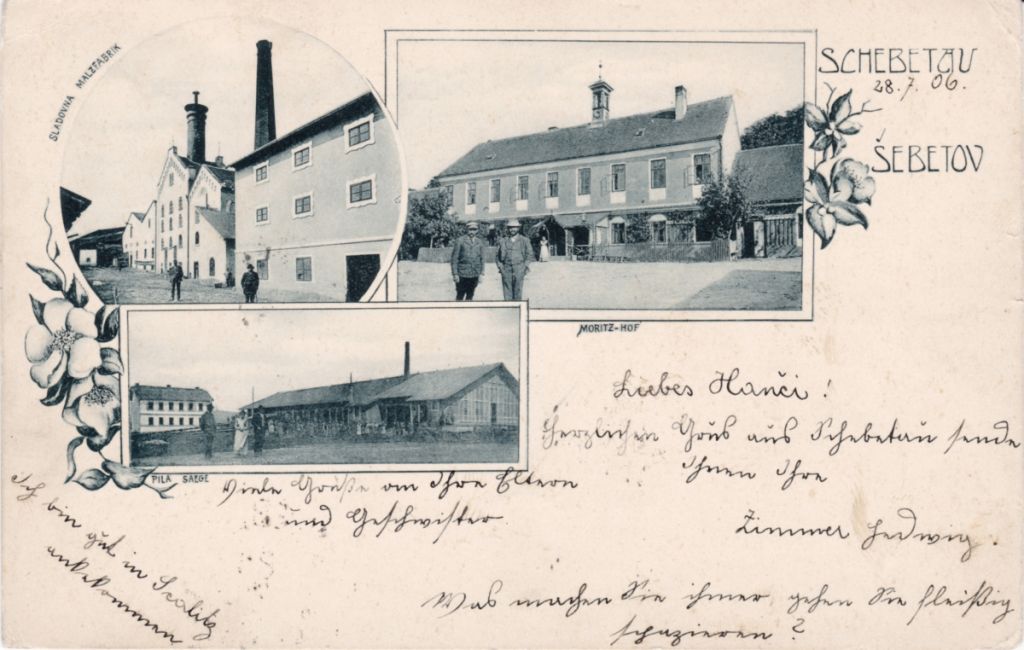 SLADOVNA MALZFABRIK
SCHEBETAU
28. 7. 06.
ŠEBETOV
MORITZ-HOF
PILA SAEGE
Liebes Hanči!
Herzlichen Grus aus Schebetau sende
Ihnen Ihre
Zimmer Hedwig.
Viele Grüße an Ihre Eltern
und Geschwister
Ich bin gut in
ankekommen
Was machen Sie ihmer, gehen Sie fleißig
spazieren?